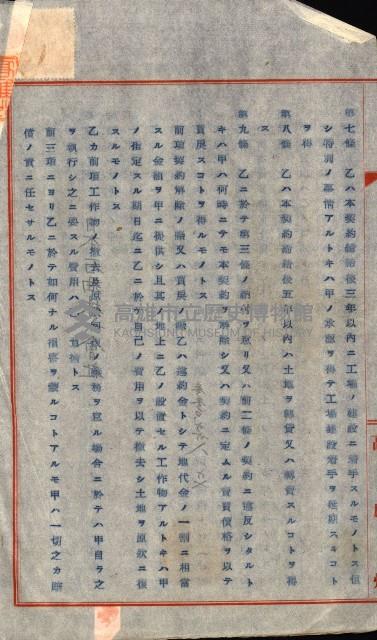 第七條 乙ハ本契約締結後三年以内ニ工場ノ建設ニ着手スルモノトス但
シ特別ノ事情アルトキハ甲ノ承認ヲ得テ工場建設着手ヲ延期スルコト
ヲ得
第八條 乙ハ本契約締結後五年以内ハ土地ヲ轉賣又ハ轉貸スルコトヲ得
ス
第九條 乙ニ於テ第三條ノ納付ヲ怠リ又ハ前二條ノ契約ニ違反シタルト
キハ甲ハ何時ニテモ本契約ヲ解除シ又ハ契約ニ定ムル賣買價格ヲ以テ
買戻スコトヲ得ルモノトス
前項契約解除ノ時又ハ買戻 乙ハ違約金トシテ地代金ノ一割ニ相當
スル金額ヲ甲ニ提供シ且其ノ地上ニ乙ノ設置セル工作物アルトキハ甲
ノ指定スル期日迄ニ乙ニ於テ自己ノ費用ヲ以テ撤去シ土地ヲ原狀ニ復
スルモノトス
乙カ前項工作物ノ撤去 義務ヲ怠ル場合ニ於テハ甲自ラ之
ヲ執行シ之ニ要スル費用ハ 負擔トス
前三項ニヨリ乙ニ於テ如何ナル損害ヲ蒙ルコトアルモ甲ハ一切之カ賠
償ノ責ニ任セサルモノトス
高雄市立歷史博物館
KAOHSIUNG MUSEUM OF HISTORY